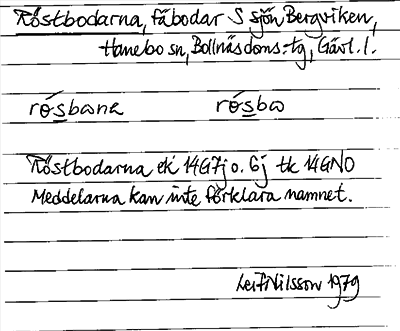 Röstbodarna, fäbodar S sjön Bergviken,
Hanebo sn, Bollnäs doms-tg, Gävl. l.
rósbana rósba
Röstbodarna ek 14G7j o. 6j tk 14GNO
Meddelarna kan inte förklara namnet.
Leif Nilsson 1979